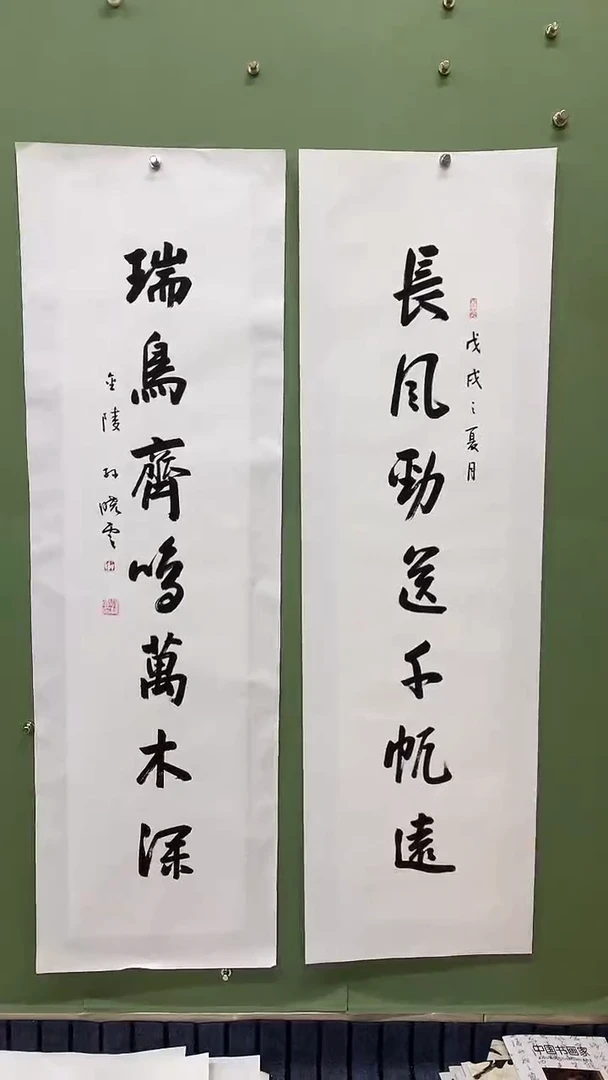 長風勁送千帆遠
戊戌之夏月
瑞鳥齊鳴萬木深
金陵 孙曉雲
中国书画家